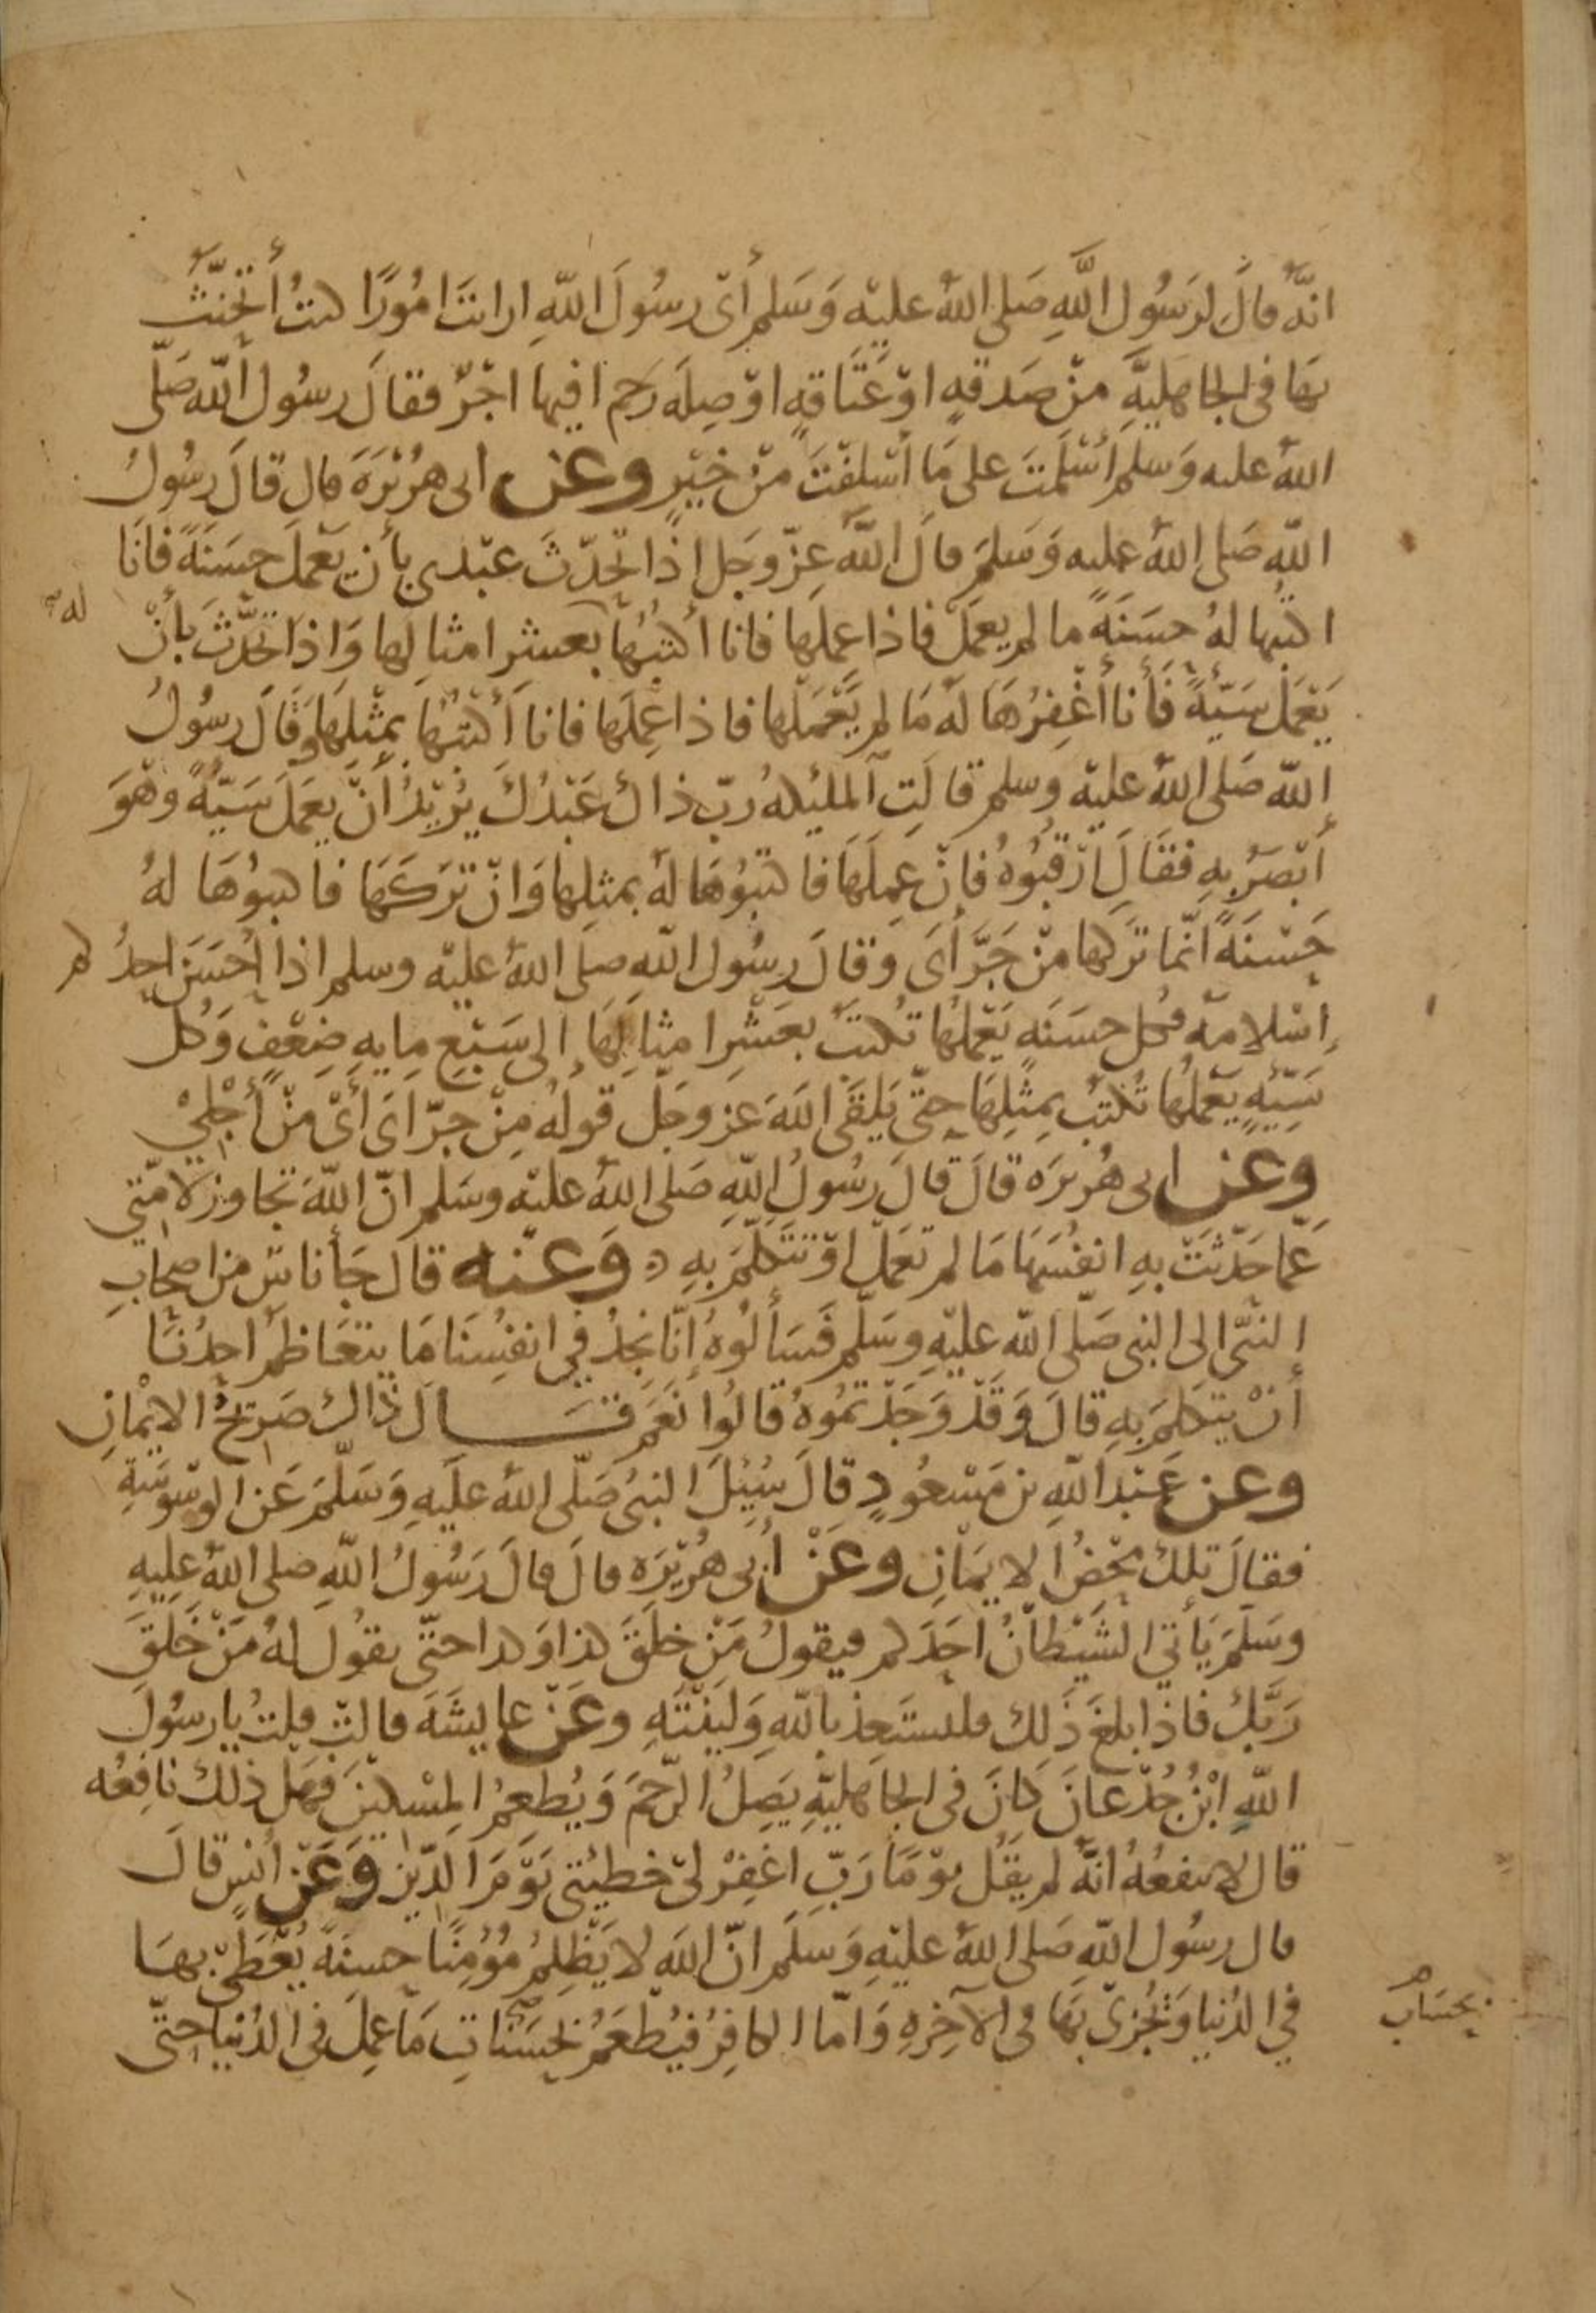 انَّهُ قالَ لرَسُول اللَّهِ صَلى اللهُ عليْهِ وَسَلم أىْ رسُولَ اللّهِ ارايتَ امُورًا كنتُ أتَحَنَّثُ
بهَا فى الجاهَليَّةِ منْ صَدقةٍ اوْ عَتَاقةٍ اوْ صِلَة رَحم افيها اجْرٌ فقالَ رسُول اللّه صَلّى
اللهُ عليه وَسَلم أسْلَمْتَ على مَا أسْلَفْتَ منْ خَيْرٍ وعن ابى هرُيْرَةَ قال قالَ رسُولُ
اللّه صَلى اللهُ عليه وَسَلمَ قالَ اللَّهُ عزّ وجَل اذا تحَدّثَ عبْدى بأن يَعْمَل حسَنَةً فانَا
اكتبُها لهُ حسَنَةً ما لم يعمَلْ فاذا عملَها فانا أكتبُهَا بعشرِ امثالِها وَاذا تحَدَّثَ بأنْ
له
يَعْمَل سَيّئةً فَأنا أغْفِرُهَا لهُ مَا لم يَعْمَلها فاذا عِملَها فانا أكتبُها بِمثْلِهَا وَقَالَ رسُولُ
اللّه صَلى اللهُ عليْه وسلم قالَتِ آلملئِكهُ رَبِّ ذاكَ عَبْدُكَ يرُيْدُ أنْ يعَملَ سَيّئةً وَهْوَ
أبْصَرُ بهِ فقَالَ ارْقبُوهُ فاِنْ عمِلَهَا فاكتبُوُهَا لهُ بمثلِها وَانْ تَرَكَهَا فاكتبوُهَا لهُ
حَسْنَةً انّما تركَها منْ جَرَّأىَ وقالَ رسُول اللّهِ صلى اللهُ عليْه وسلم اذا أحْسَنَ احدُكم
اِسْلامهُ فكل حسَنَهٍ يَعْملهُا تُكتبُ بعَشْرِ امثالِهَا إلى سَبْعِ مِايهِ ضِعْفٍ وَكل
سَيّئهٍ يَعْملهُا تُكتبُ بِمثْلِهَا حتّى يَلقَى اللّهَ عَز وجَلّ قولهُ مِنْ جرّاىَ أىْ منْ أجْلىْ
وعن ابى هُريْرَه قالَ قالَ رسُولُ اللّهِ صَلى اللهُ عليْه وسَلم انّ اللّهَ تجاوزَ لامّتى
عَمّا حَدّثَتْ بهِ انفُسَهَا مَا لم تعمَلْ اوْ تَتَكلّمَ بهِ وَعنه قال جَأ ناسٌ من اصحابِ
النبّى الى النبى صَلّى اللّه عليْهِ وسَلّم فَسَألوُهُ إنّا نجدُ في انفُسِنَا مَا يتعَاظَمُ احدُنَا
أنْ يتكلمَ بهِ قالَ وَقَدْ وَجَدْتمُوهُ قالُوا نعَم قَال ذاك صَريْحُ الايمْانِ
وعن عَبْد اللّهِ بن مَسْعُودٍ قالَ سُئِلَ النبىُ صَلّى اللهُ علَيهِ وَسَلّمَ عَن الوسْوسَةِ
فقالَ تلك محْضُ الايمَانِ وعَنْ أبى هُريْرَه قالَ قالَ رَسُولُ اللّهِ صلى اللهُ علِيهِ
وسَلّمَ يَأتي الشَيْطانُ احَدَكم فيقولُ مَنْ خلقَ كذا وَكذا حتّى يقوُل لهُ مَنْ خَلَقَ
رَبَّكَ فاذا بلغَ ذَلك فليستَعِذ باللّهِ وَليَنْتَهِ وعَنْ عايشَهَ قالتْ قلتُ يا رسُولَ
اللّهِ ابْنُ جُدْعانَ كانَ فى الجاهَليّهِ يَصِلُ الرّحمَ وَيُطعِمُ المِسْكينَ فهَلْ ذلك نافِعُه
قال لا ينفعُهُ انّهُ لم يقُل يوْمًا رَبِّ اغفِرْ لىْ خطيئتى يَوْمَ الدّيْن وَعَنْ أنسٍ قالَ
قال رسُول اللّهِ صَلى اللهُ عليْهِ وَسَلَم انّ اللّهَ لا يَظْلِمُ مُؤمِنًا حسنةً يُعْطَىْ بهَا
في الدُنيا وَيُجْزىْ بهَا فى الآخِرهِ وَامّا الكافِرُ فيُطعَمُ بحَسَنَاتِ مَا عمِلَ فى الدُنيا حتّى
بحسَاب